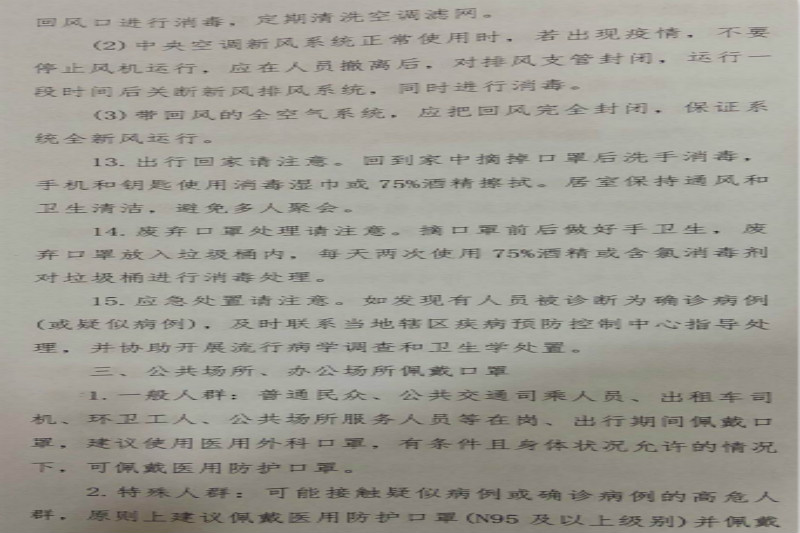 回风口进行消毒，定期清洗空调滤网。
(2)中央空调新风系统正常使用时，若出现疫情，不要
停止风机运行，应在人员撤离后，对排风支管封闭，运行一
段时间后关断新风排风系统，同时进行消毒。
(3)带回风的全空气系统，应把回风完全封闭，保证系
统全新风运行。
13.出行回家请注意。回到家中摘掉口罩后洗手消毒，
手机和钥匙使用消毒湿巾或75%酒精擦拭。居室保持通风和
卫生清洁，避免多人聚会。
14.废弃口罩处理请注意。摘口罩前后做好手卫生，废
弃口罩放入垃圾桶内，每天两次使用75%酒精或含氯消毒剂
对垃圾桶进行消毒处理。
15.应急处置请注意。如发现有人员被诊断为确诊病例
(或疑似病例)，及时联系当地辖区疾病预防控制中心指导处
理，并协助开展流行病学调查和卫生学处置。
三、公共场所、办公场所佩戴口罩
1.一般人群：普通民众、公共交通司乘人员、出租车司
机、环卫工人、公共场所服务人员等在岗、出行期间佩戴口
罩，建议使用医用外科口罩，有条件且身体状况允许的情况
下，可佩戴医用防护口罩。
2.特殊人群：可能接触疑似病例或确诊病例的高危人
群，原则上建议佩戴医用防护口罩(N95及以上级别)并佩戴